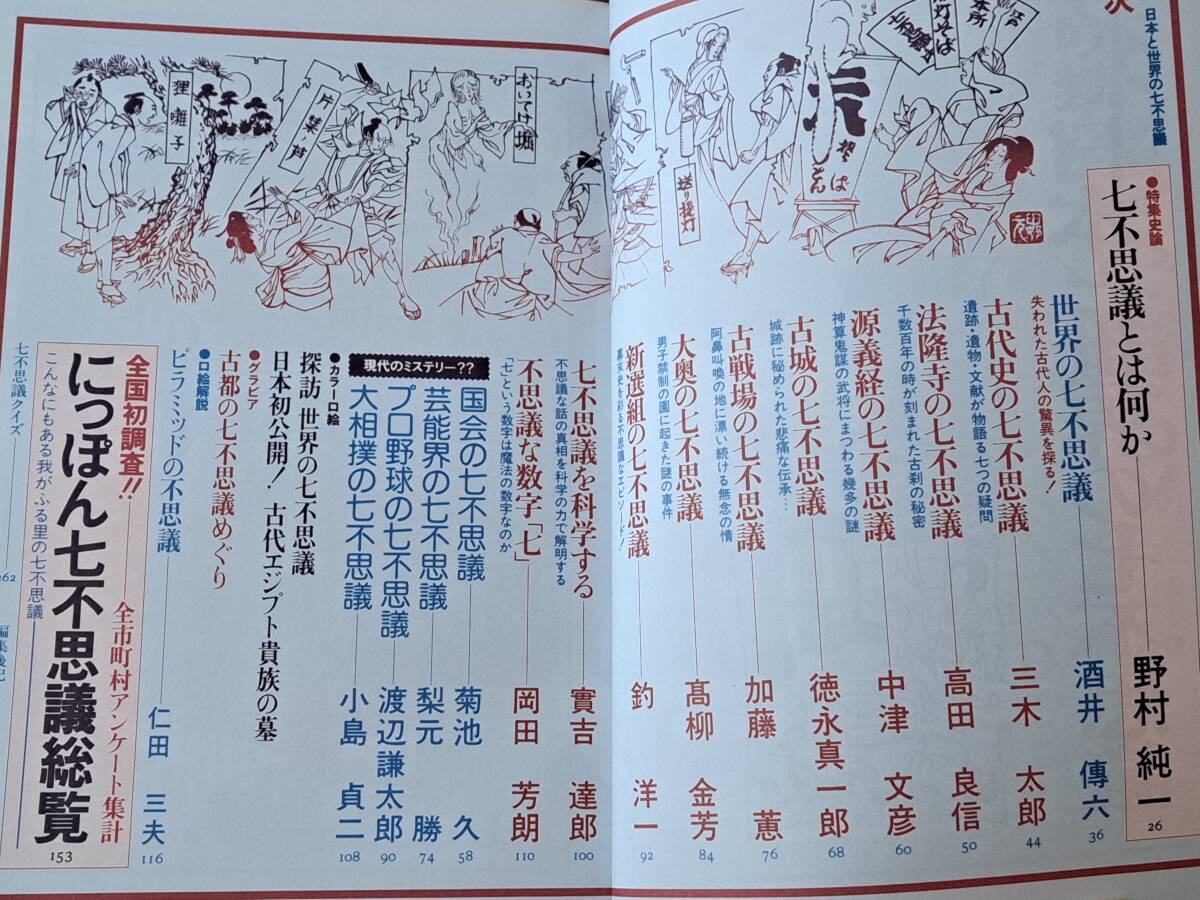 次
日本と世界の七不思議
●特集史論
七不思議とは何か
野村 純一
26
世界の七不思議
失われた古代人の驚異を探る!
酒井 傳六
36
古代史の七不思議
遺跡・遺物・文献が物語る七つの疑問
三木 太郎
44
法隆寺の七不思議
千数百年の時が刻まれた古刹の秘密
高田 良信
50
源義経の七不思議
神算鬼謀の武将にまつわる幾多の謎
中津 文彦
60
古城の七不思議
城跡に秘められた悲痛な伝承…
徳永真一郎
68
古戦場の七不思議
阿鼻叫喚の地に漂い続ける無念の情
加藤 蕙
76
大奥の七不思議
男子禁制の園に起きた謎の事件
髙柳 金芳
84
新選組の七不思議
幕末史を彩る不思議なエピソード!
釣 洋一
92
七不思議を科学する
不思議な話の真相を科学の力で解明する
實吉 達郎
100
不思議な数字「七」
「七」という数字は魔法の数字なのか
岡田 芳朗
110
現代のミステリー??
国会の七不思議
菊池 久
58
芸能界の七不思議
梨元 勝
74
プロ野球の七不思議
渡辺謙太郎
90
大相撲の七不思議
小島 貞二
108
●カラー口絵
探訪 世界の七不思議
日本初公開! 古代エジプト貴族の墓
●グラビア
古都の七不思議めぐり
●口絵解説
ピラミッドの不思議
仁田 三夫
116
全国初調査!!
全市町村アンケート集計
にっぽん七不思議総覧
こんなにもある我がふる里の七不思議
153
七不思議クイズ
262
編集後記
本所
灯
そば
送り提灯
二八
そば
おいてけ堀
片葉芦
狸囃子